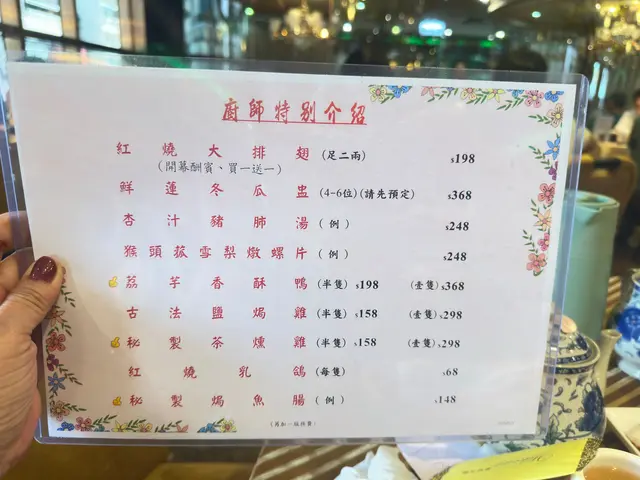 廚師特別介紹
紅燒大排翅 (足二兩) $198
(開幕酬賓、買一送一)
鮮蓮冬瓜盅 (4-6位)(請先預定) $368
杏汁豬肺湯 (例) $248
猴頭菇雪梨燉螺片 (例) $248
荔芋香酥鴨 (半隻) $198 (壹隻) $368
古法鹽焗雞 (半隻) $158 (壹隻) $298
秘製茶燻雞 (半隻) $158 (壹隻) $298
紅燒乳鴿 (每隻) $68
秘製焗魚腸 (例) $148
(另加一服務費)